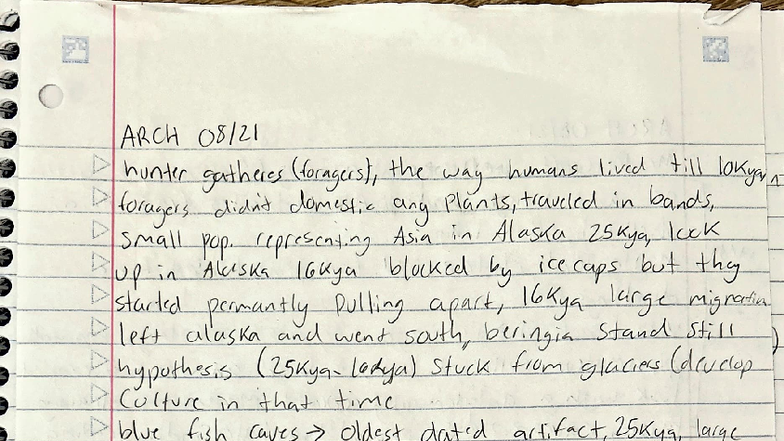 ARCH 08/21
hunter gatheres (foragers), the way humans lived till 10Kya,
foragers didn't domestic any plants, traveled in bands,
small pop. representing Asia in Alaska 25Kya, lock
up in Alaska 16Kya blocked by ice caps but they
started permantly pulling apart, 16Kya large migration
left alaska and went south, beringia stand still
hypothesis (25Kya- Kya) stuck from glaciers (develop
Culture in that time
blue fish caves → oldest dated artifact, 25Kya, large